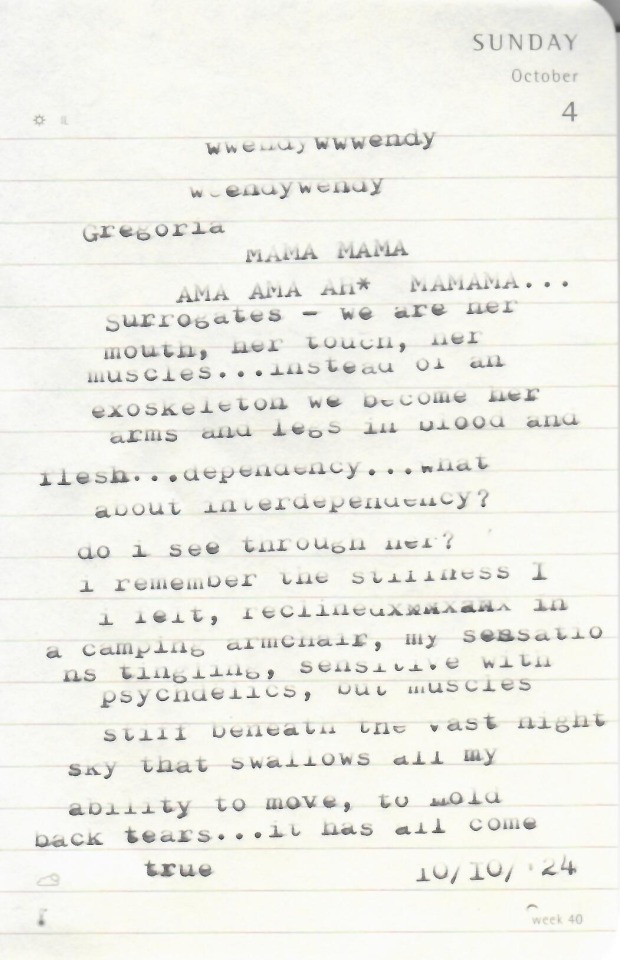 SUNDAY
October
4
wwendywwwendy
w endywendy
Gregoria
MAMA MAMA
AMA AMA AH* MAMAMA...
Surrogates - we are her
mouth, her touch, her
muscles...instead of an
exoskeleton we become her
arms and legs in blood and
flesh...dependency...what
about interdependency?
do i see through her?
i remember the stillness I
i felt, reclinedxxxxaxx in
a camping armchair, my sensatio
ns tingling, sensitive with
psychdelics, but muscles
still beneath the vast night
sky that swallows all my
ability to move, to hold
back tears...it has all come
true 10/10/ 24
week 40